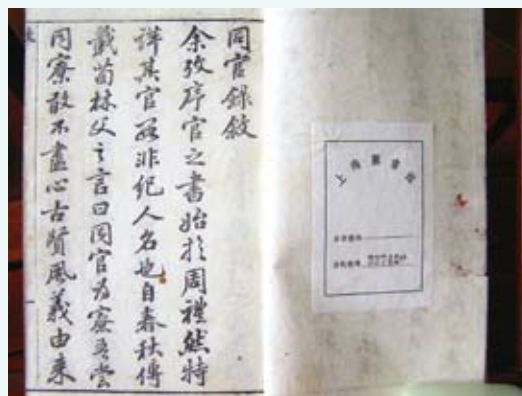 同官錄敘
余攷序官之書始於周禮然特
詳其官而非纪人名也自春秋傳
載荀林父之言曰同官为寮吾尝
同寮敢不盡心古賢風義由来
上海圖書館